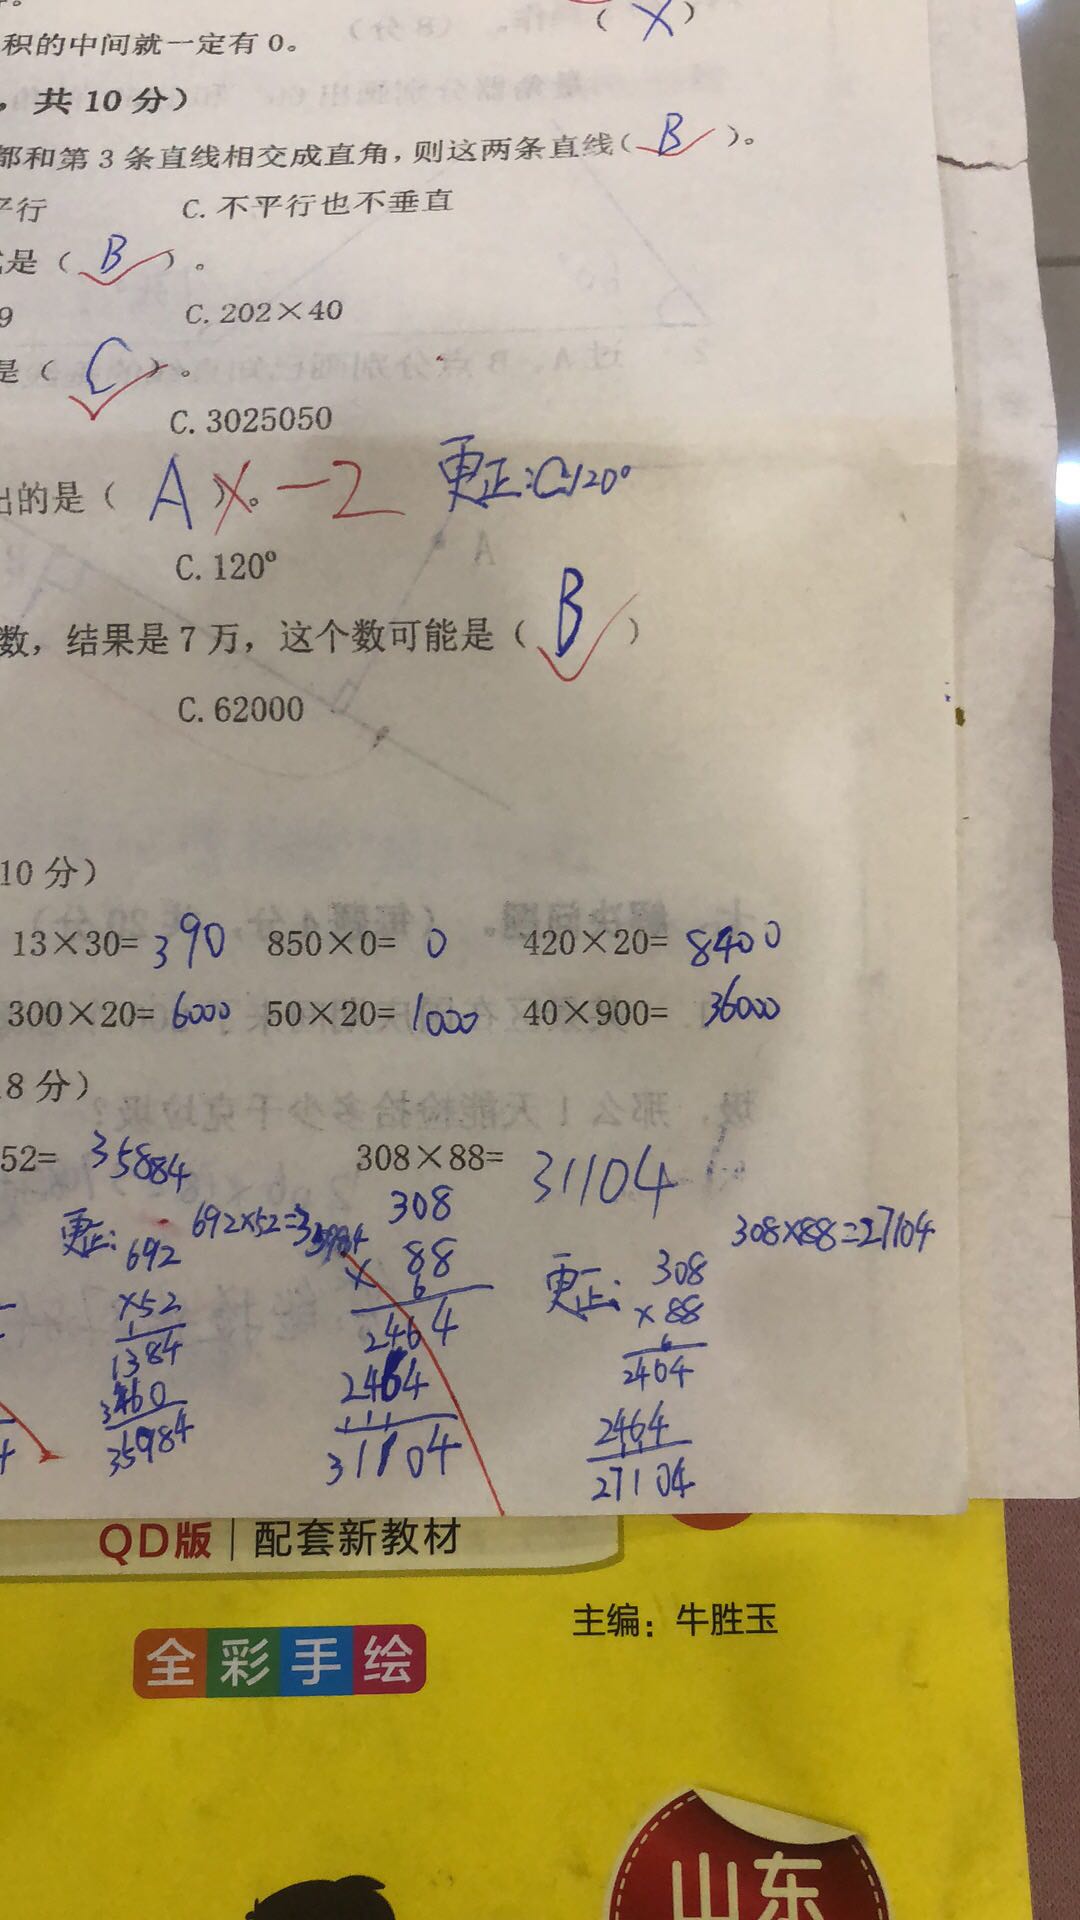 (X)
积的中间就一定有0。
，共10分）
都和第3条直线相交成直角，则这两条直线(B)。
平行 C. 不平行也不垂直
是（B）。
9 C. 202×40
是（C）。
C. 3025050
出的是（A）。 X -2 更正:C.120°
C. 120°
数，结果是7万，这个数可能是（B）
C. 62000
10分）
13×30=390 850×0=0 420×20=8400
300×20=6000 50×20=1000 40×900=36000
8分）
52=35884 308×88=31104
更正: 692×52= 308 308×88=27104
692 88 更正: 308
×52 × 6 ×88
1 6
1384 2464 2464
3460 2464 2464
35984 31104 27104
QD版|配套新教材
主编：牛胜玉
全彩手绘
山东